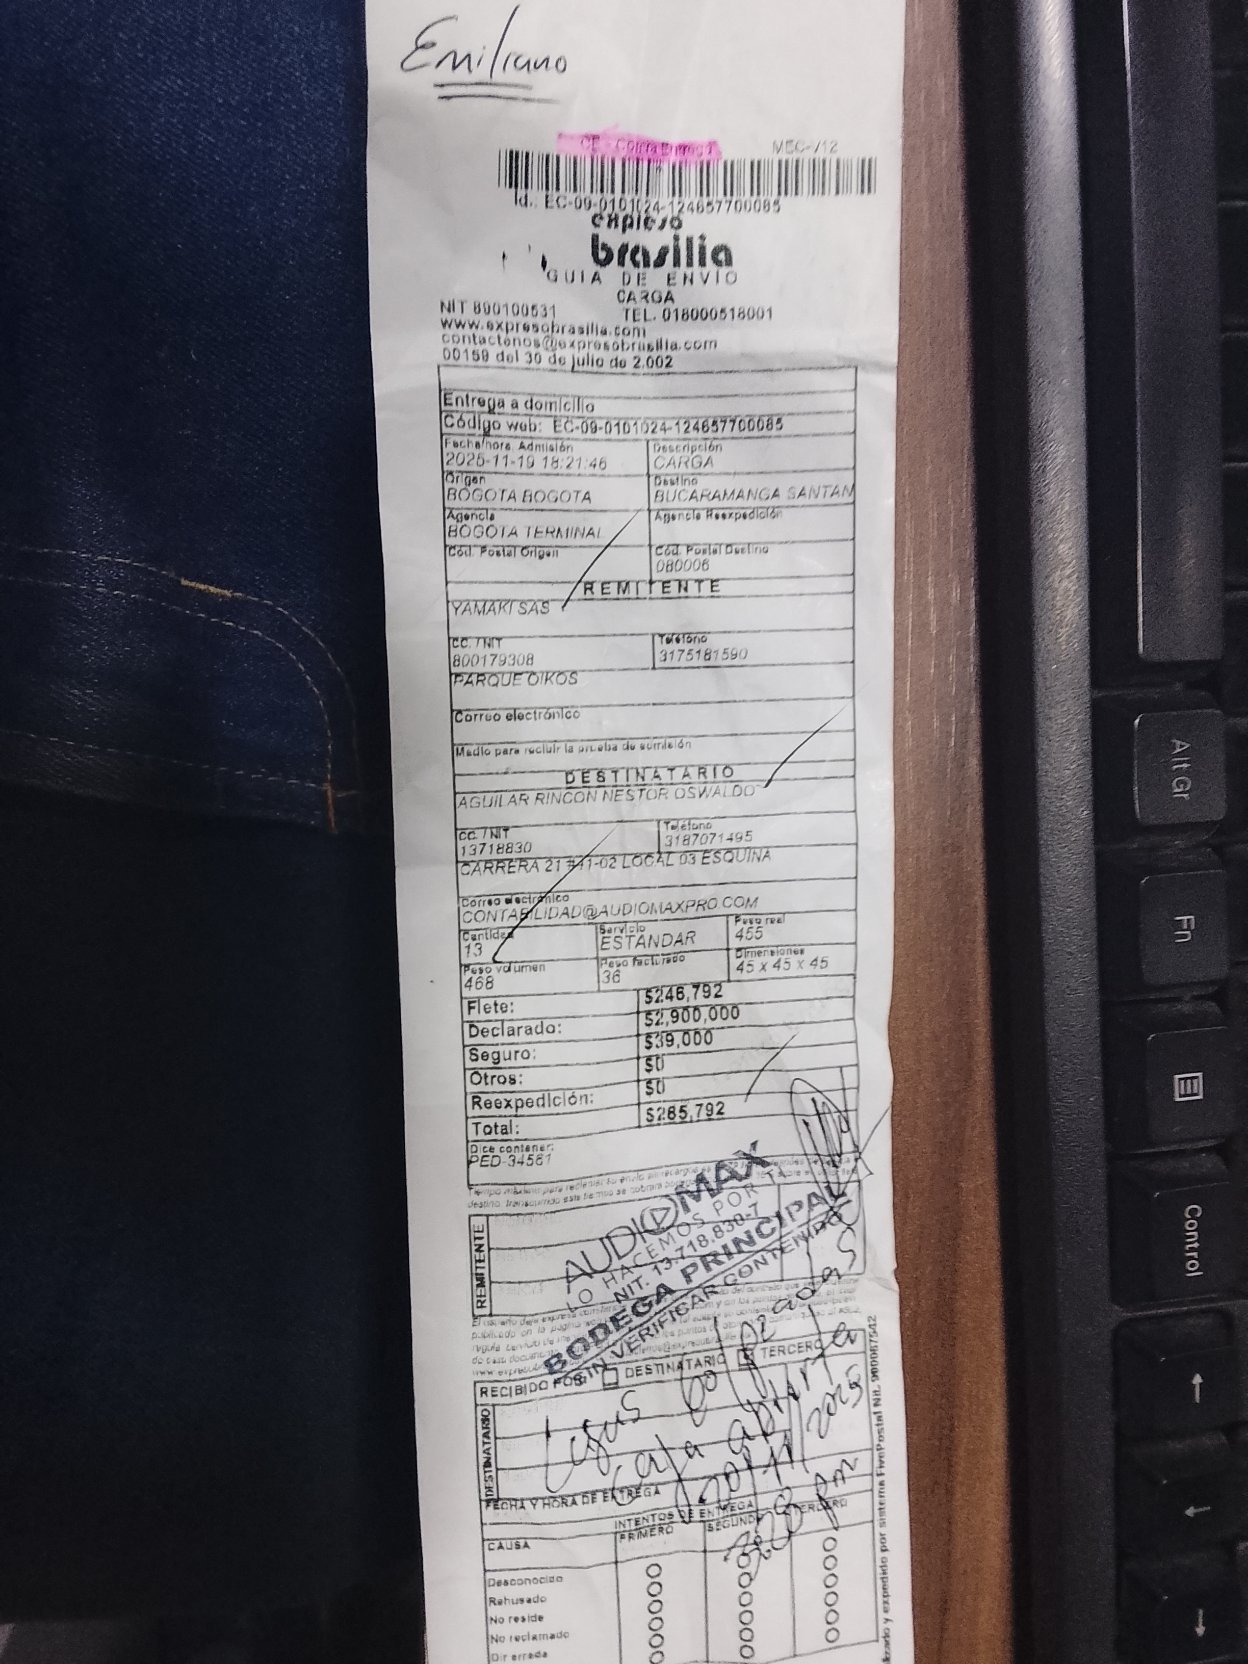 Emiliano
CE - Contra Entrega MEC-V12
Id.: EC-09-0101024-124657700085
expreso
brasilia
GUIA DE ENVIO
CARGA
NIT 890100531 TEL. 018000518001
www.expresobrasilia.com
contactenos@expresobrasilia.com
00159 del 30 de julio de 2.002
Entrega a domicilio
Código web: EC-09-0101024-124657700085
Fecha/hora Admisión Descripción
2025-11-19 18:21:46 CARGA
Origen Destino
BOGOTA BOGOTA BUCARAMANGA SANTAN
Agencia Agencia Reexpedición
BOGOTA TERMINAL
Cód. Postal Origen Cód. Postal Destino
080006
REMITENTE
YAMAKI SAS
CC. / NIT Teléfono
800179308 3175181590
PARQUE OIKOS
Correo electrónico
Medio para recibir la prueba de admisión
DESTINATARIO
AGUILAR RINCON NESTOR OSWALDO
CC. / NIT Teléfono
13718830 3187071495
CARRERA 21 #41-02 LOCAL 03 ESQUINA
Correo electrónico
CONTABILIDAD@AUDIOMAXPRO.COM
Cantidad Servicio Peso real
13 ESTANDAR 455
Peso volumen Peso facturado Dimensiones
468 36 45 x 45 x 45
Flete: $246,792
Declarado: $2,900,000
Seguro: $39,000
Otros: $0
Reexpedición: $0
Total: $285,792
Dice contener:
PED-34561
AUDIOMAX
LO HACEMOS POR TI
NIT. 13.718.830-7
BODEGA PRINCIPAL
SIN VERIFICAR CONTENIDO
REMITENTE
RECIBIDO POR DESTINATARIO TERCERO
golpeadas
Caja abierta
20/11/2025
3:28 pm
DESTINATARIO
FECHA Y HORA DE ENTREGA
INTENTOS DE ENTREGA
CAUSA PRIMERO SEGUNDO TERCERO
Desconocido
Rehusado
No reside
No reclamado
Dir errada
y expedido por sistema FivePostal Nit. 900087542
Alt Gr
Fn
Control